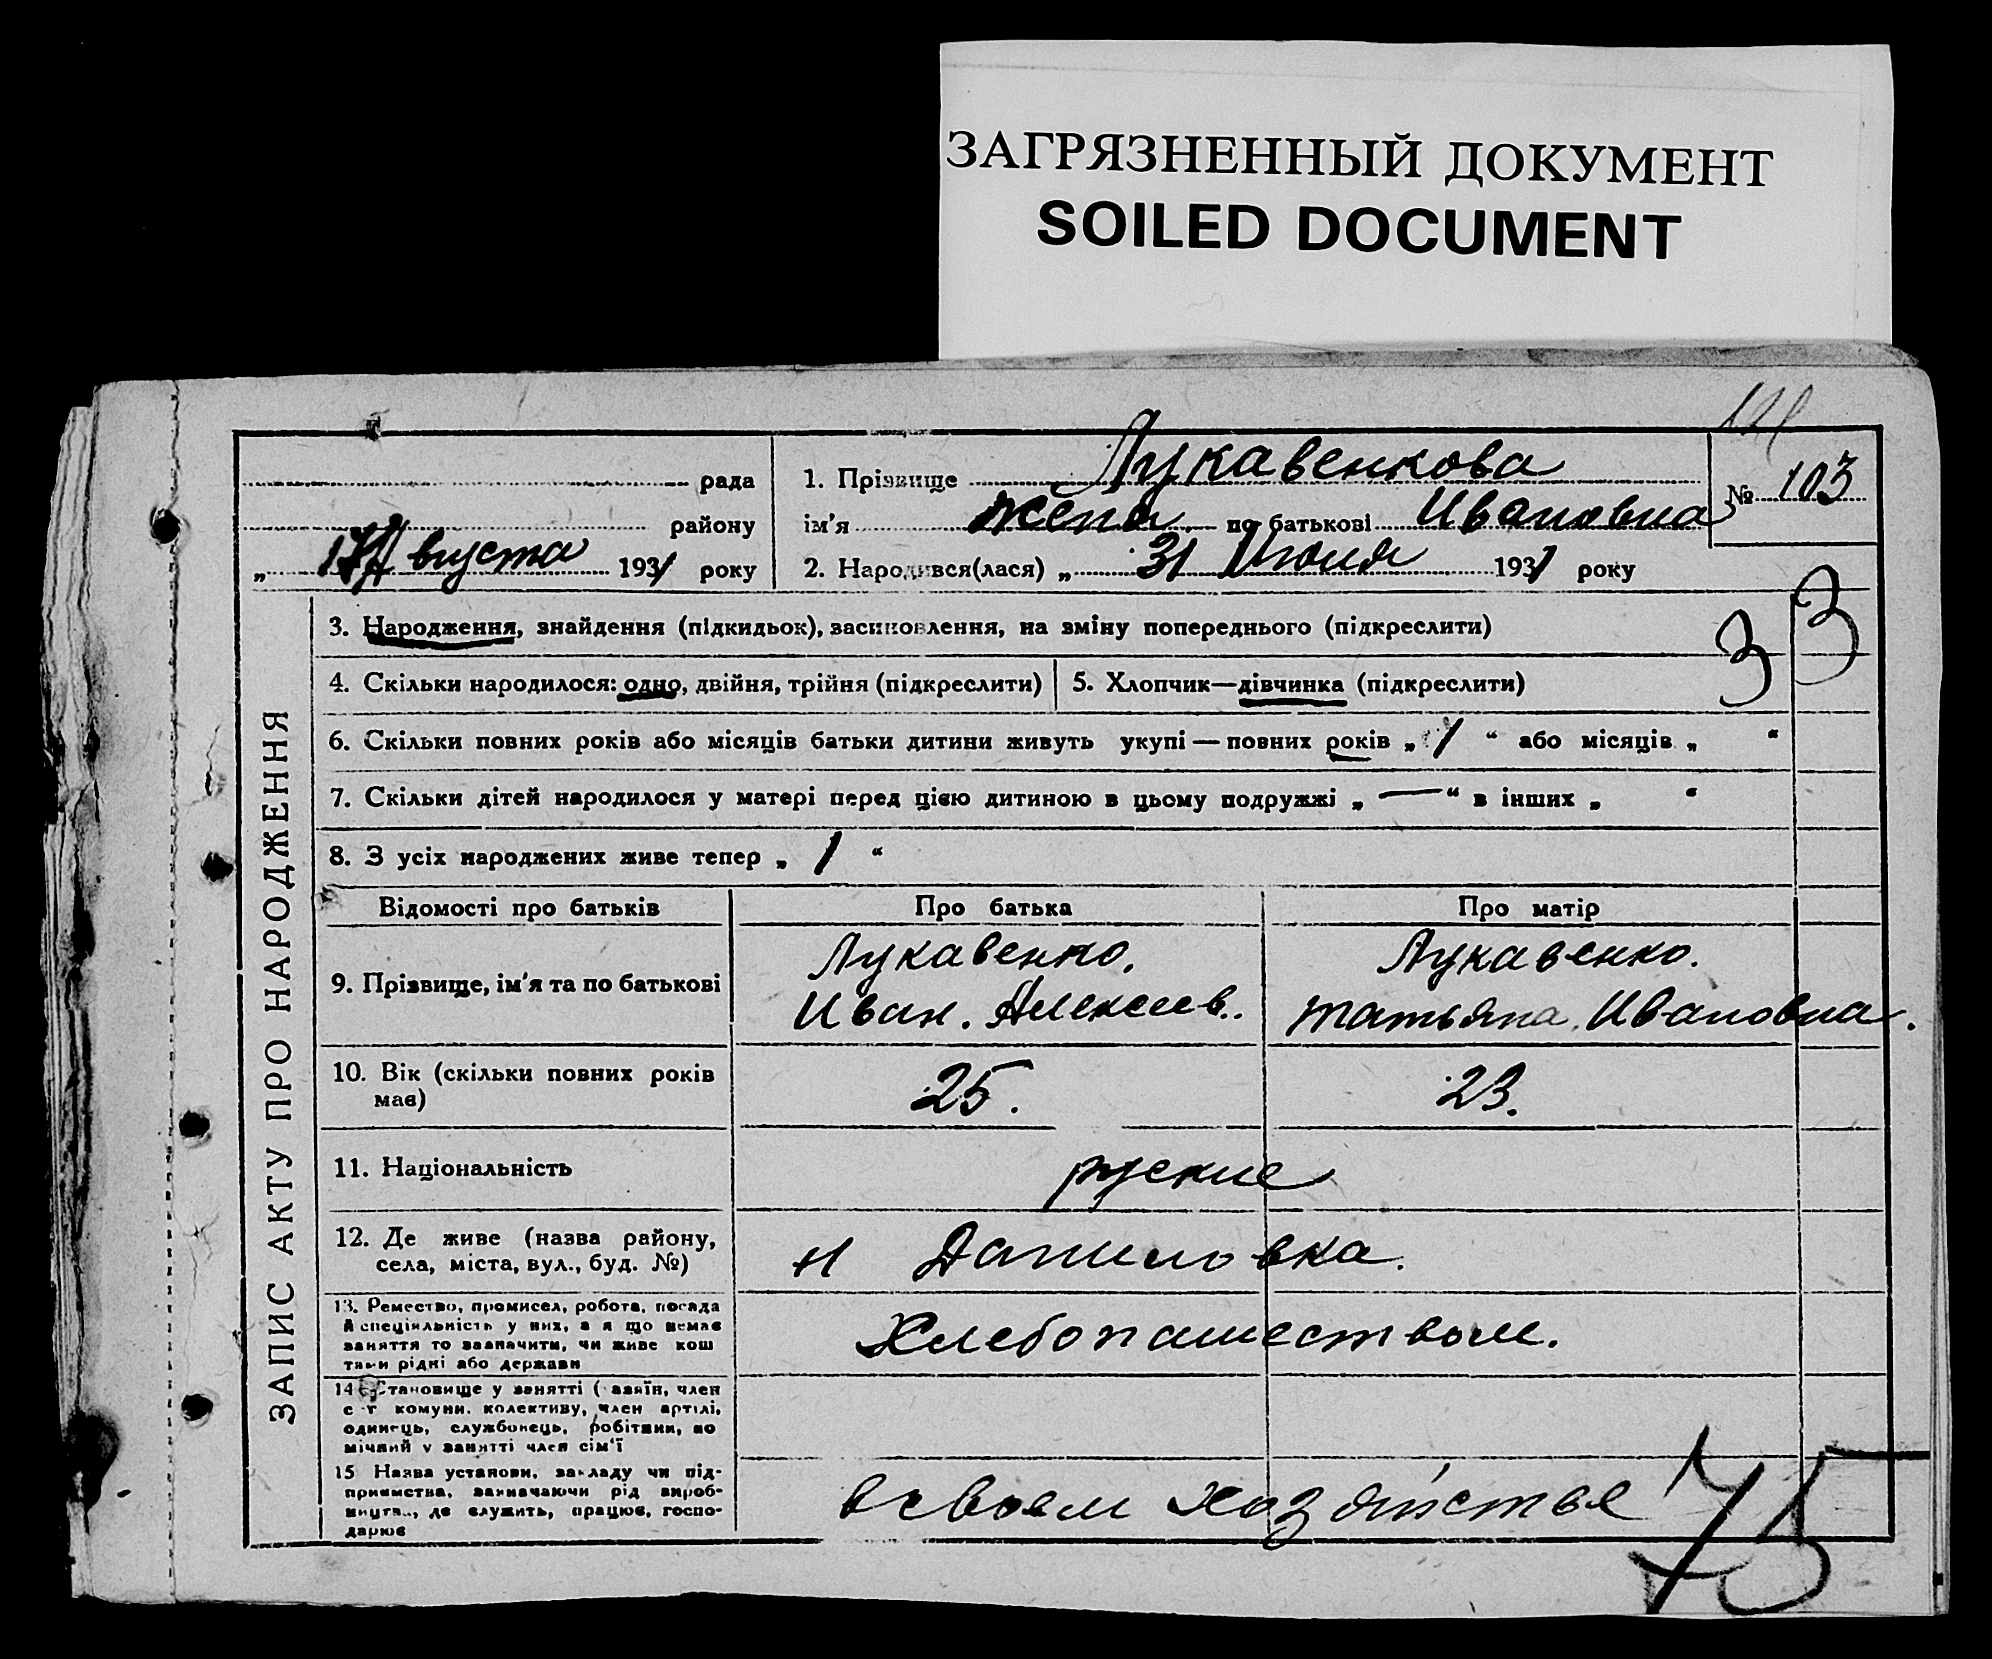 ЗАГРЯЗНЕННЫЙ ДОКУМЕНТ
SOILED DOCUMENT
рада
району
„ 17 Августа 1931 року
1. Прізвище Лукавенкова
ім'я по батькові Ивановна
2. Народився(лася) „ 31 Июля 1931 року
№ 103
3. Народження, знайдення (підкидьок), засиновлення, на зміну попереднього (підкреслити)
3 3
4. Скільки народилося: одно, двійня, трійня (підкреслити)
5. Хлопчик—дівчинка (підкреслити)
6. Скільки повних років або місяців батьки дитини живуть укупі — повних років „ 1 “ або місяців „ “
7. Скільки дітей народилося у матері перед цією дитиною в цьому подружжі „ — “ в інших „ “
8. З усіх народжених живе тепер „ 1 “
ЗАПИС АКТУ ПРО НАРОДЖЕННЯ
Відомості про батьків
Про батька
Про матір
9. Прізвище, ім'я та по батькові
Лукавенко.
Иван. Алексеев.
Лукавенко.
Татьяна. Ивановна.
10. Вік (скільки повних років
має)
25.
23.
11. Національність
руские
12. Де живе (назва району,
села, міста, вул., буд. №)
н Даниловка.
13. Ремество, промисел, робота, посада
й спеціяльність у них, а я що немає
заняття то зазначити, чи живе кош
тами рідні або держави
Хлебопашеством.
14 Становище у занятті ( азяїн, член
с г комуни. колективу, член артілі,
одинець, службовець, робітник, по
мічний у занятті член сім'ї
15 Назва установи, закладу чи під-
приємства, зазначаючи рід вироб-
ництва, де служить, працює, госпо-
дарює
в своем хозяйстве
75